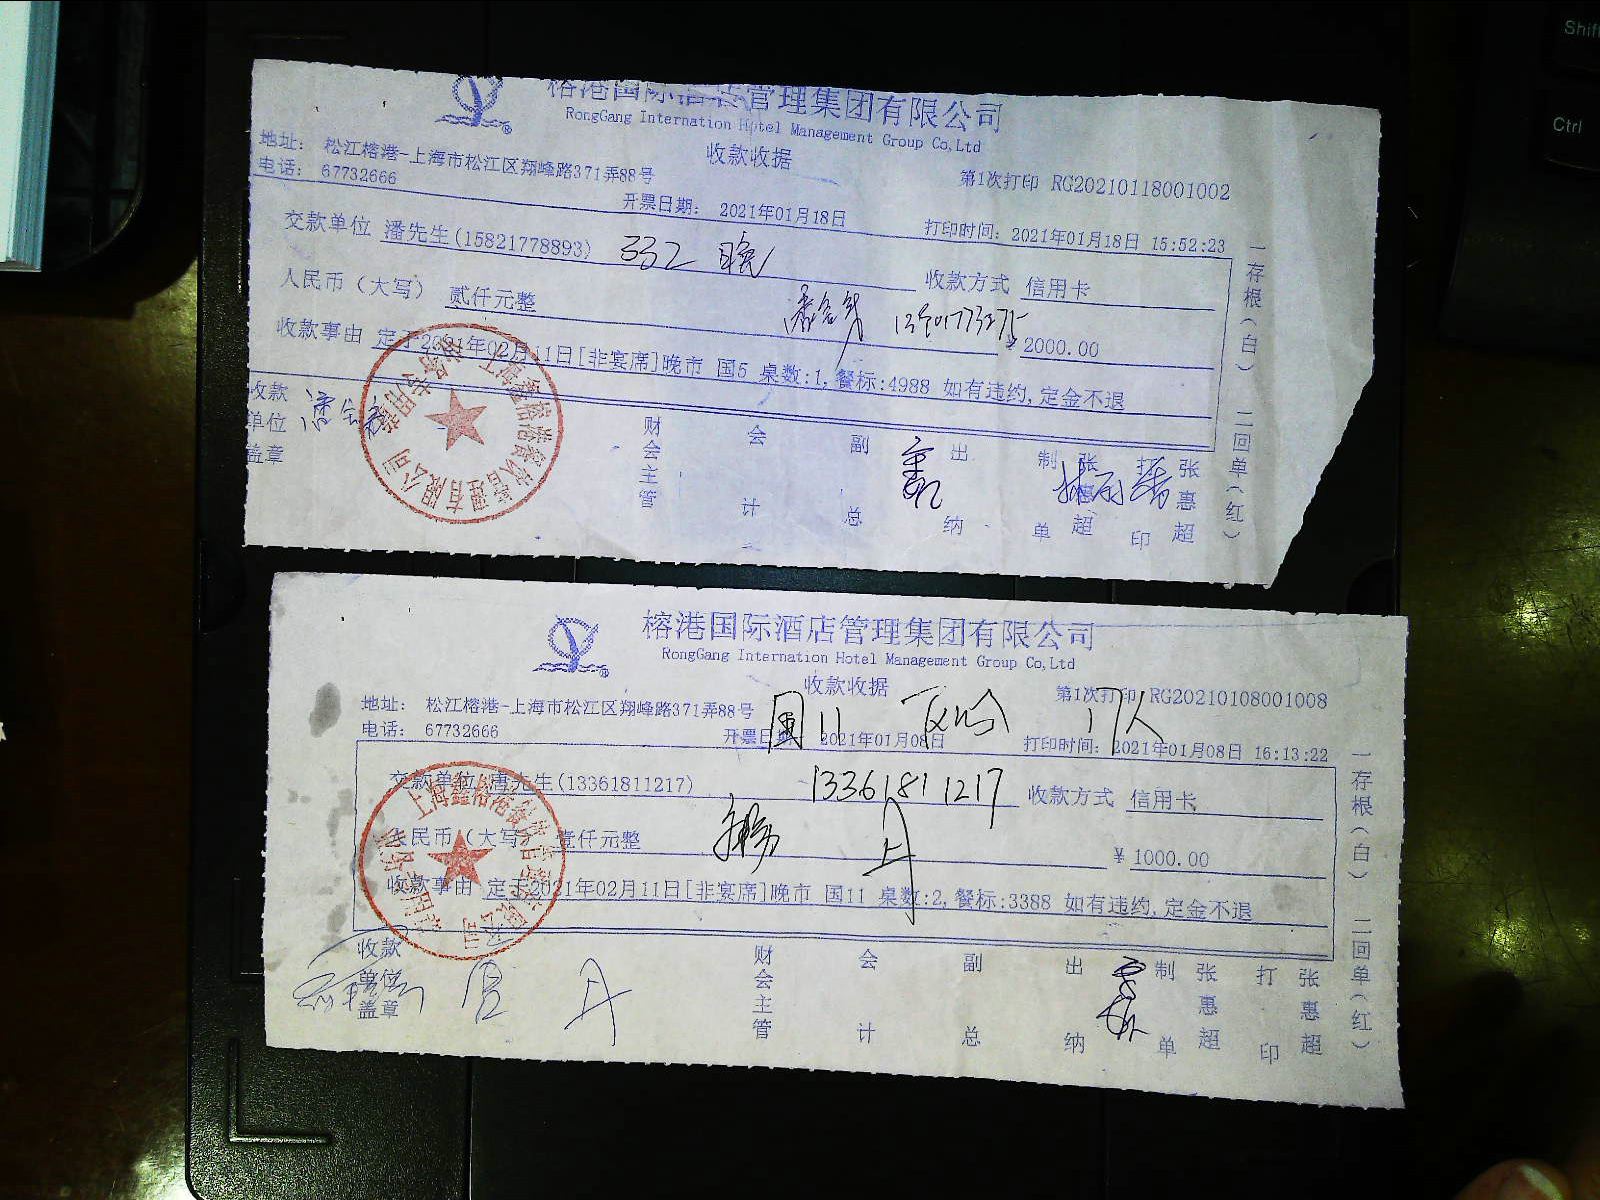 榕港国际酒店管理集团有限公司
RongGang Internation Hotel Management Group Co,Ltd
收款收据
地址： 松江榕港-上海市松江区翔峰路371弄88号
第1次打印 RG20210118001002
电话： 67732666
开票日期： 2021年01月18日
打印时间：2021年01月18日 15:52:23
交款单位 潘先生(15821778893) 332 晚
收款方式 信用卡
人民币（大写） 贰仟元整
¥ 2000.00
收款事由 定于2021年02月11日[非宴席]晚市 国5 桌数:1,餐标:4988 如有违约,定金不退
收款单位盖章
财会主管 会计 副总 出纳 制单 张惠超 打印 张惠超
一存根(白) 二回单(红)
榕港国际酒店管理集团有限公司
RongGang Internation Hotel Management Group Co,Ltd
收款收据
地址： 松江榕港-上海市松江区翔峰路371弄88号
第1次打印 RG20210108001008
电话： 67732666
开票日期： 2021年01月08日
打印时间：2021年01月08日 16:13:22
国11
交款单位 唐先生(13361811217) 13361811217
收款方式 信用卡
人民币（大写） 壹仟元整
¥ 1000.00
收款事由 定于2021年02月11日[非宴席]晚市 国11 桌数:2,餐标:3388 如有违约,定金不退
收款单位盖章
财会主管 会计 副总 出纳 制单 张惠超 打印 张惠超
一存根(白) 二回单(红)
Shift
Ctrl